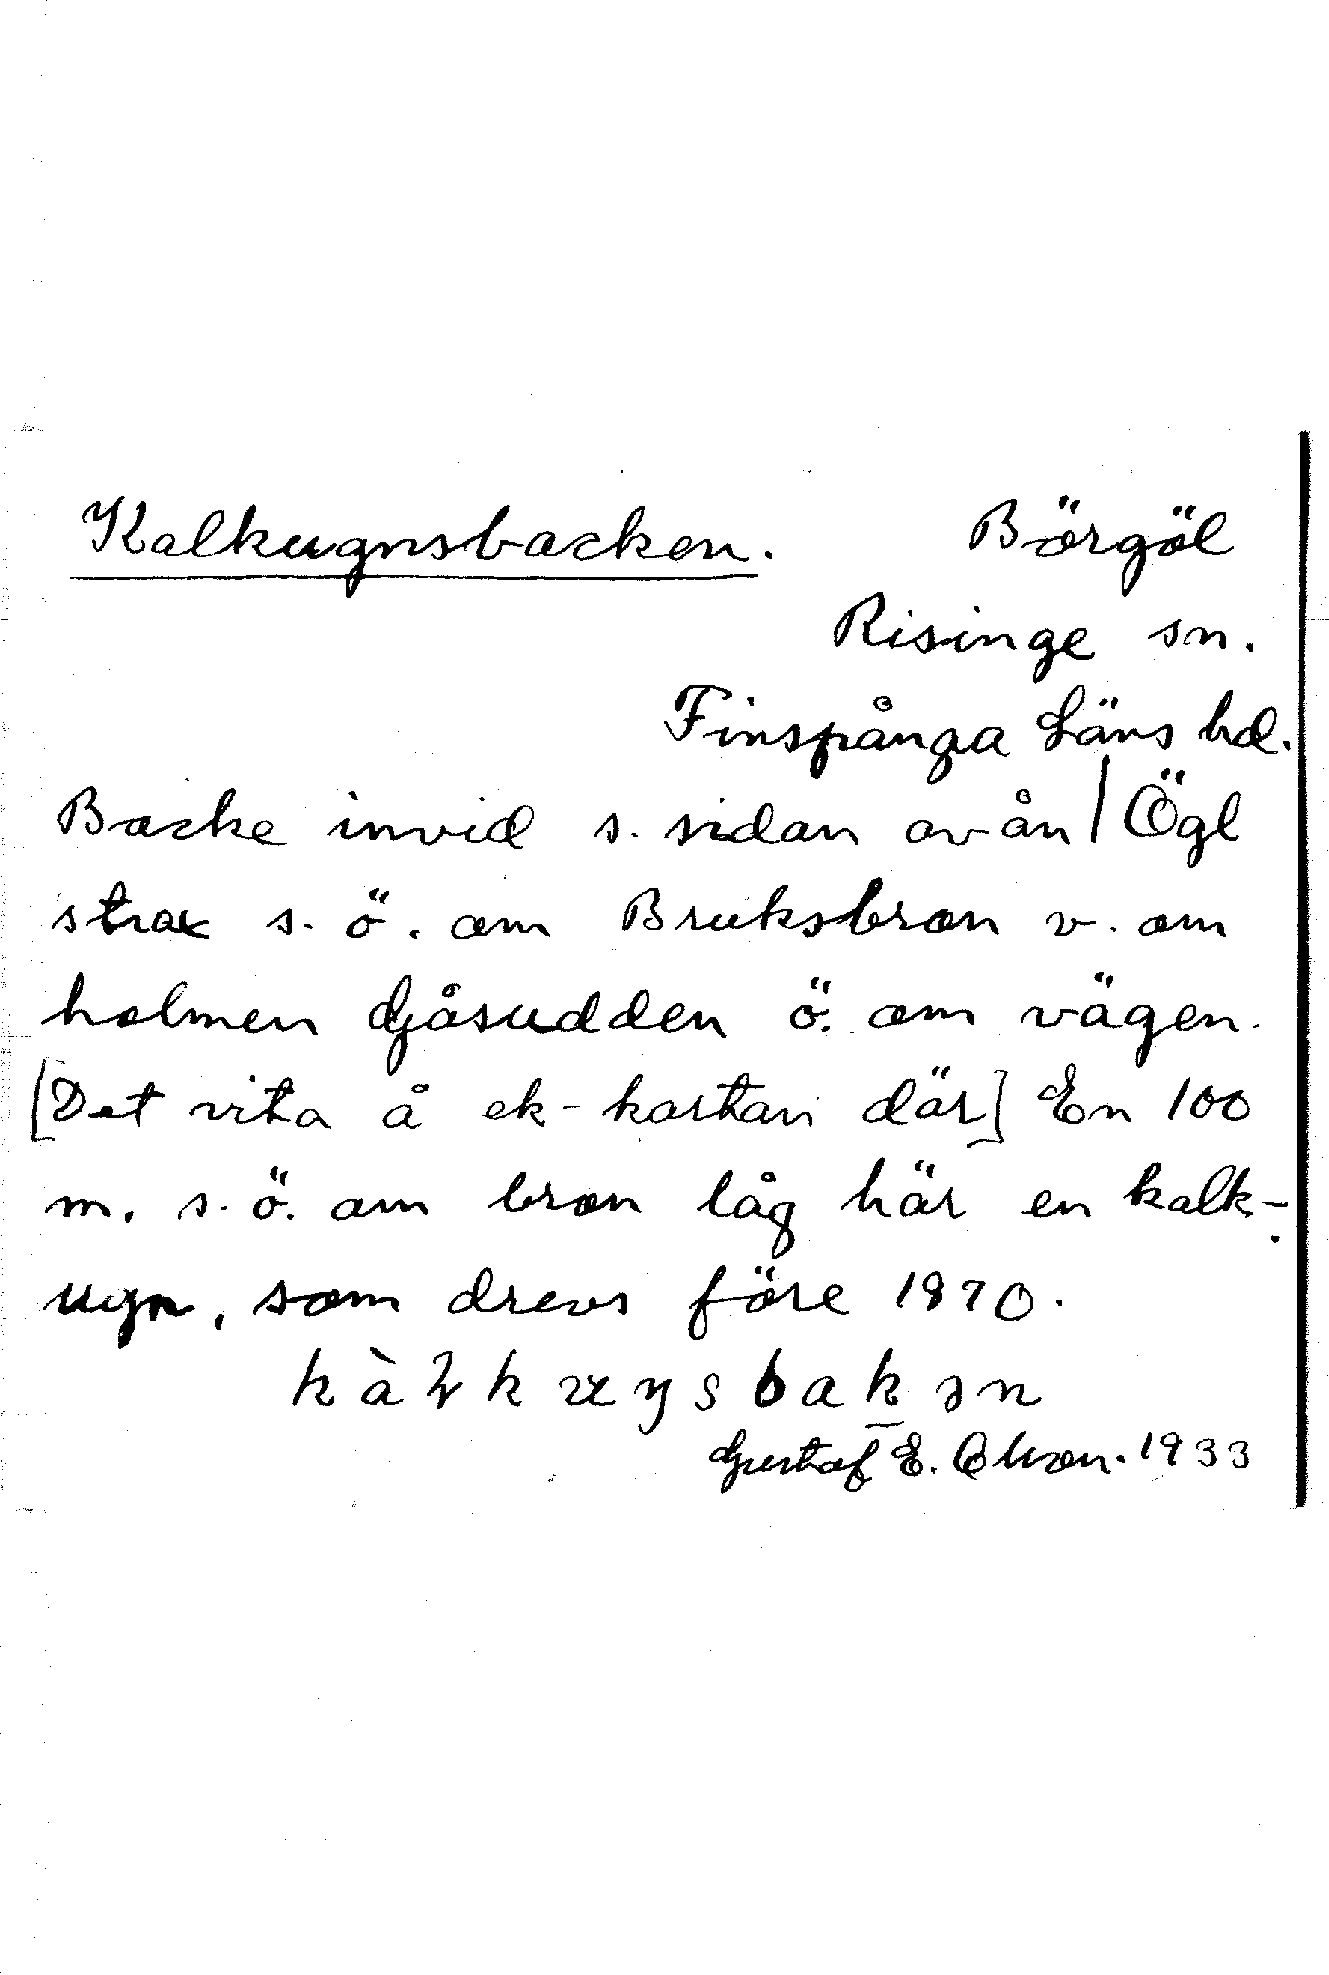 Kalkugnsbacken. Börgöl
Risinge sn.
Finspånga Läns hd.
Backe invid s. sidan av ån | Ögl
strax s. ö. om Bruksbron v. om
holmen Gjåsudden ö. om vägen.
[Det vita å ek-kartan där] En 100
m. s. ö. om bron låg här en kalk-
ugn, som drevs före 1870.
Gustaf E. Olson. 1933